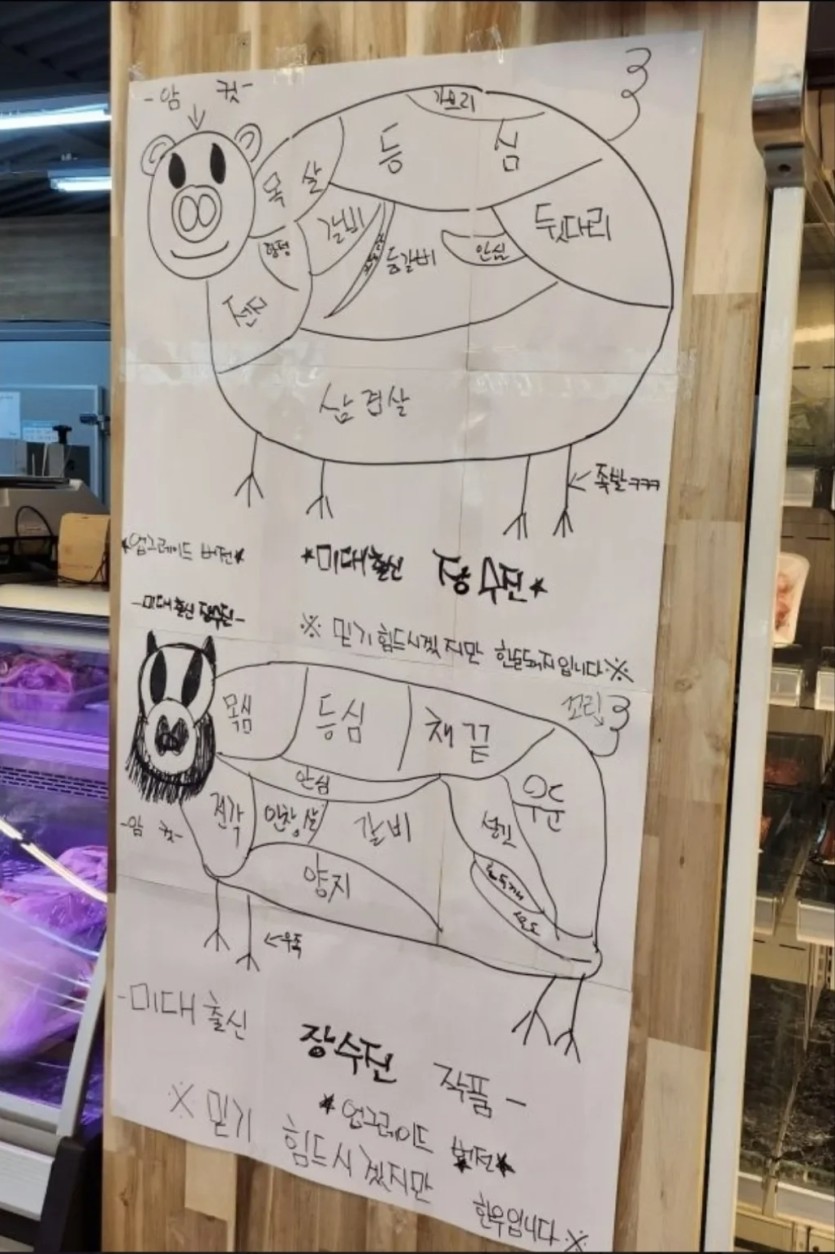 -암 컷-
가브리
등 심
목 살
갈비
항정
등갈비
안심
뒷다리
전지
삼겹살
족발ㅋㅋㅋ
*업그레이드 버전*
*미대출신 장수진*
-미대출신 장수진-
※ 믿기힘드시겠지만 한돈돼지입니다※
꼬리
목심
등심
채끝
안심
우둔
전각
안창살
갈비
설깃
-암 컷-
양지
홍두깨
←우족
-미대출신
장수진 작품-
*업그레이드 버전*
※ 믿기 힘드시겠지만
한우입니다※